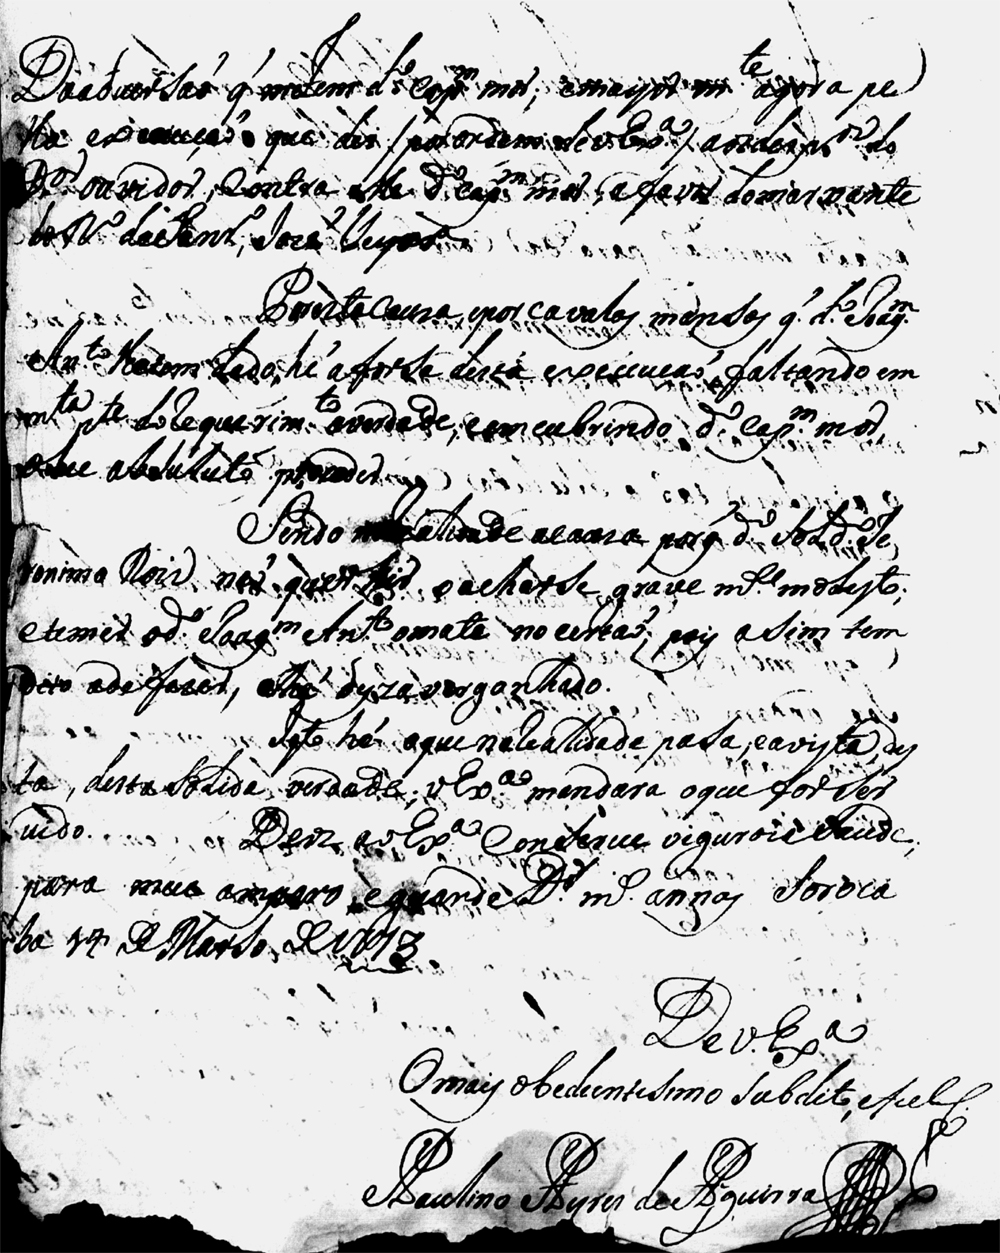 Da adversaõ q' me tem d.º Cap.m mor, e mayor m.te agora pe
lla execuçaõ, que dei (por ordem de V. Ex.ª) a ordem do
D.or ouvidor, contra elle d.º Cap.m mor, a favor do marxante
do R.º
Por esta causa e por cavalos mansos q' d.º Joaq.m
An.to tem dado, hé a forsa desta execucaõ, faltando em
m.ta p.te do Requerim.to a verdade, e emcubrindo d.º Cap.m mor,
o seu absoluto proceder.
Sendo na Realidade a cauza porq' d.º Sold.º Je
ronimo Roiz naõ quer hir o acharse grave m.te molesto,
e temer o d.º Joaq.m An.to o mate no certaõ, pois asim tem
dito a de fazer,
Isto hé o que na Realidade pasa, e a vista des
ta, desta solida verdade, V. Ex.ª mandara o que for ser
vido. Deus a V. Ex.ª Conserve vigurosa saude,
para meu amparo, e guarde D.s m.s annos Soroca
ba 14 de Marso de 1773.
De V. Ex.ª
O mais obedientissimo subdito, e fiel C.
Paulino Ayres de Aguirra